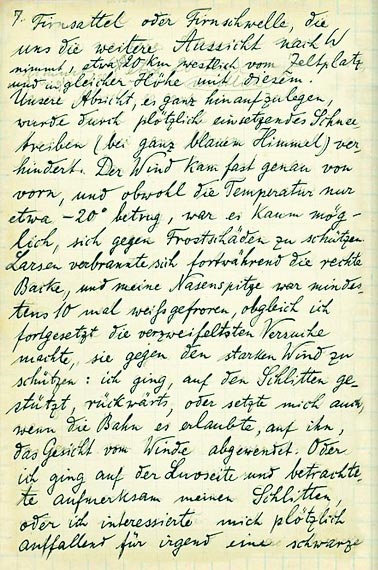 7. Firnsattel oder Firnschwelle, die
uns die weitere Aussicht nach W
nimmt, etwa 20 km westlich vom Zeltplatz
und in gleicher Höhe mit diesem.
Unsere Absicht, es ganz hinaufzulegen,
wurde durch plötzlich einsetzendes Schnee-
treiben (bei ganz blauem Himmel) ver-
hindert. Der Wind kam fast genau von
vorn, und obwohl die Temperatur nur
etwa -20° betrug, war es kaum mög-
lich, sich gegen Frostschäden zu schützen.
Larsen verbrannte sich fortwährend die rechte
Backe, und meine Nasenspitze war mindes-
tens 10 mal weißgefroren, obgleich ich
fortgesetzt die verzweifeltsten Versuche
machte, sie gegen den starken Wind zu
schützen: ich ging, auf den Schlitten ge-
stützt, rückwärts, oder setzte mich auch,
wenn die Bahn es erlaubte, auf ihn,
das Gesicht vom Winde abgewendet. Oder
ich ging auf der Luvseite und betrachte-
te aufmerksam meinen Schlitten,
oder ich interessierte mich plötzlich
auffallend für irgend eine schwarze